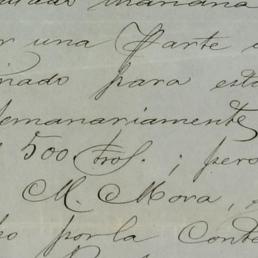 mañana
una Parte
nado para est
emanariamente
500 ; pero
M. Mora,
por la Cont